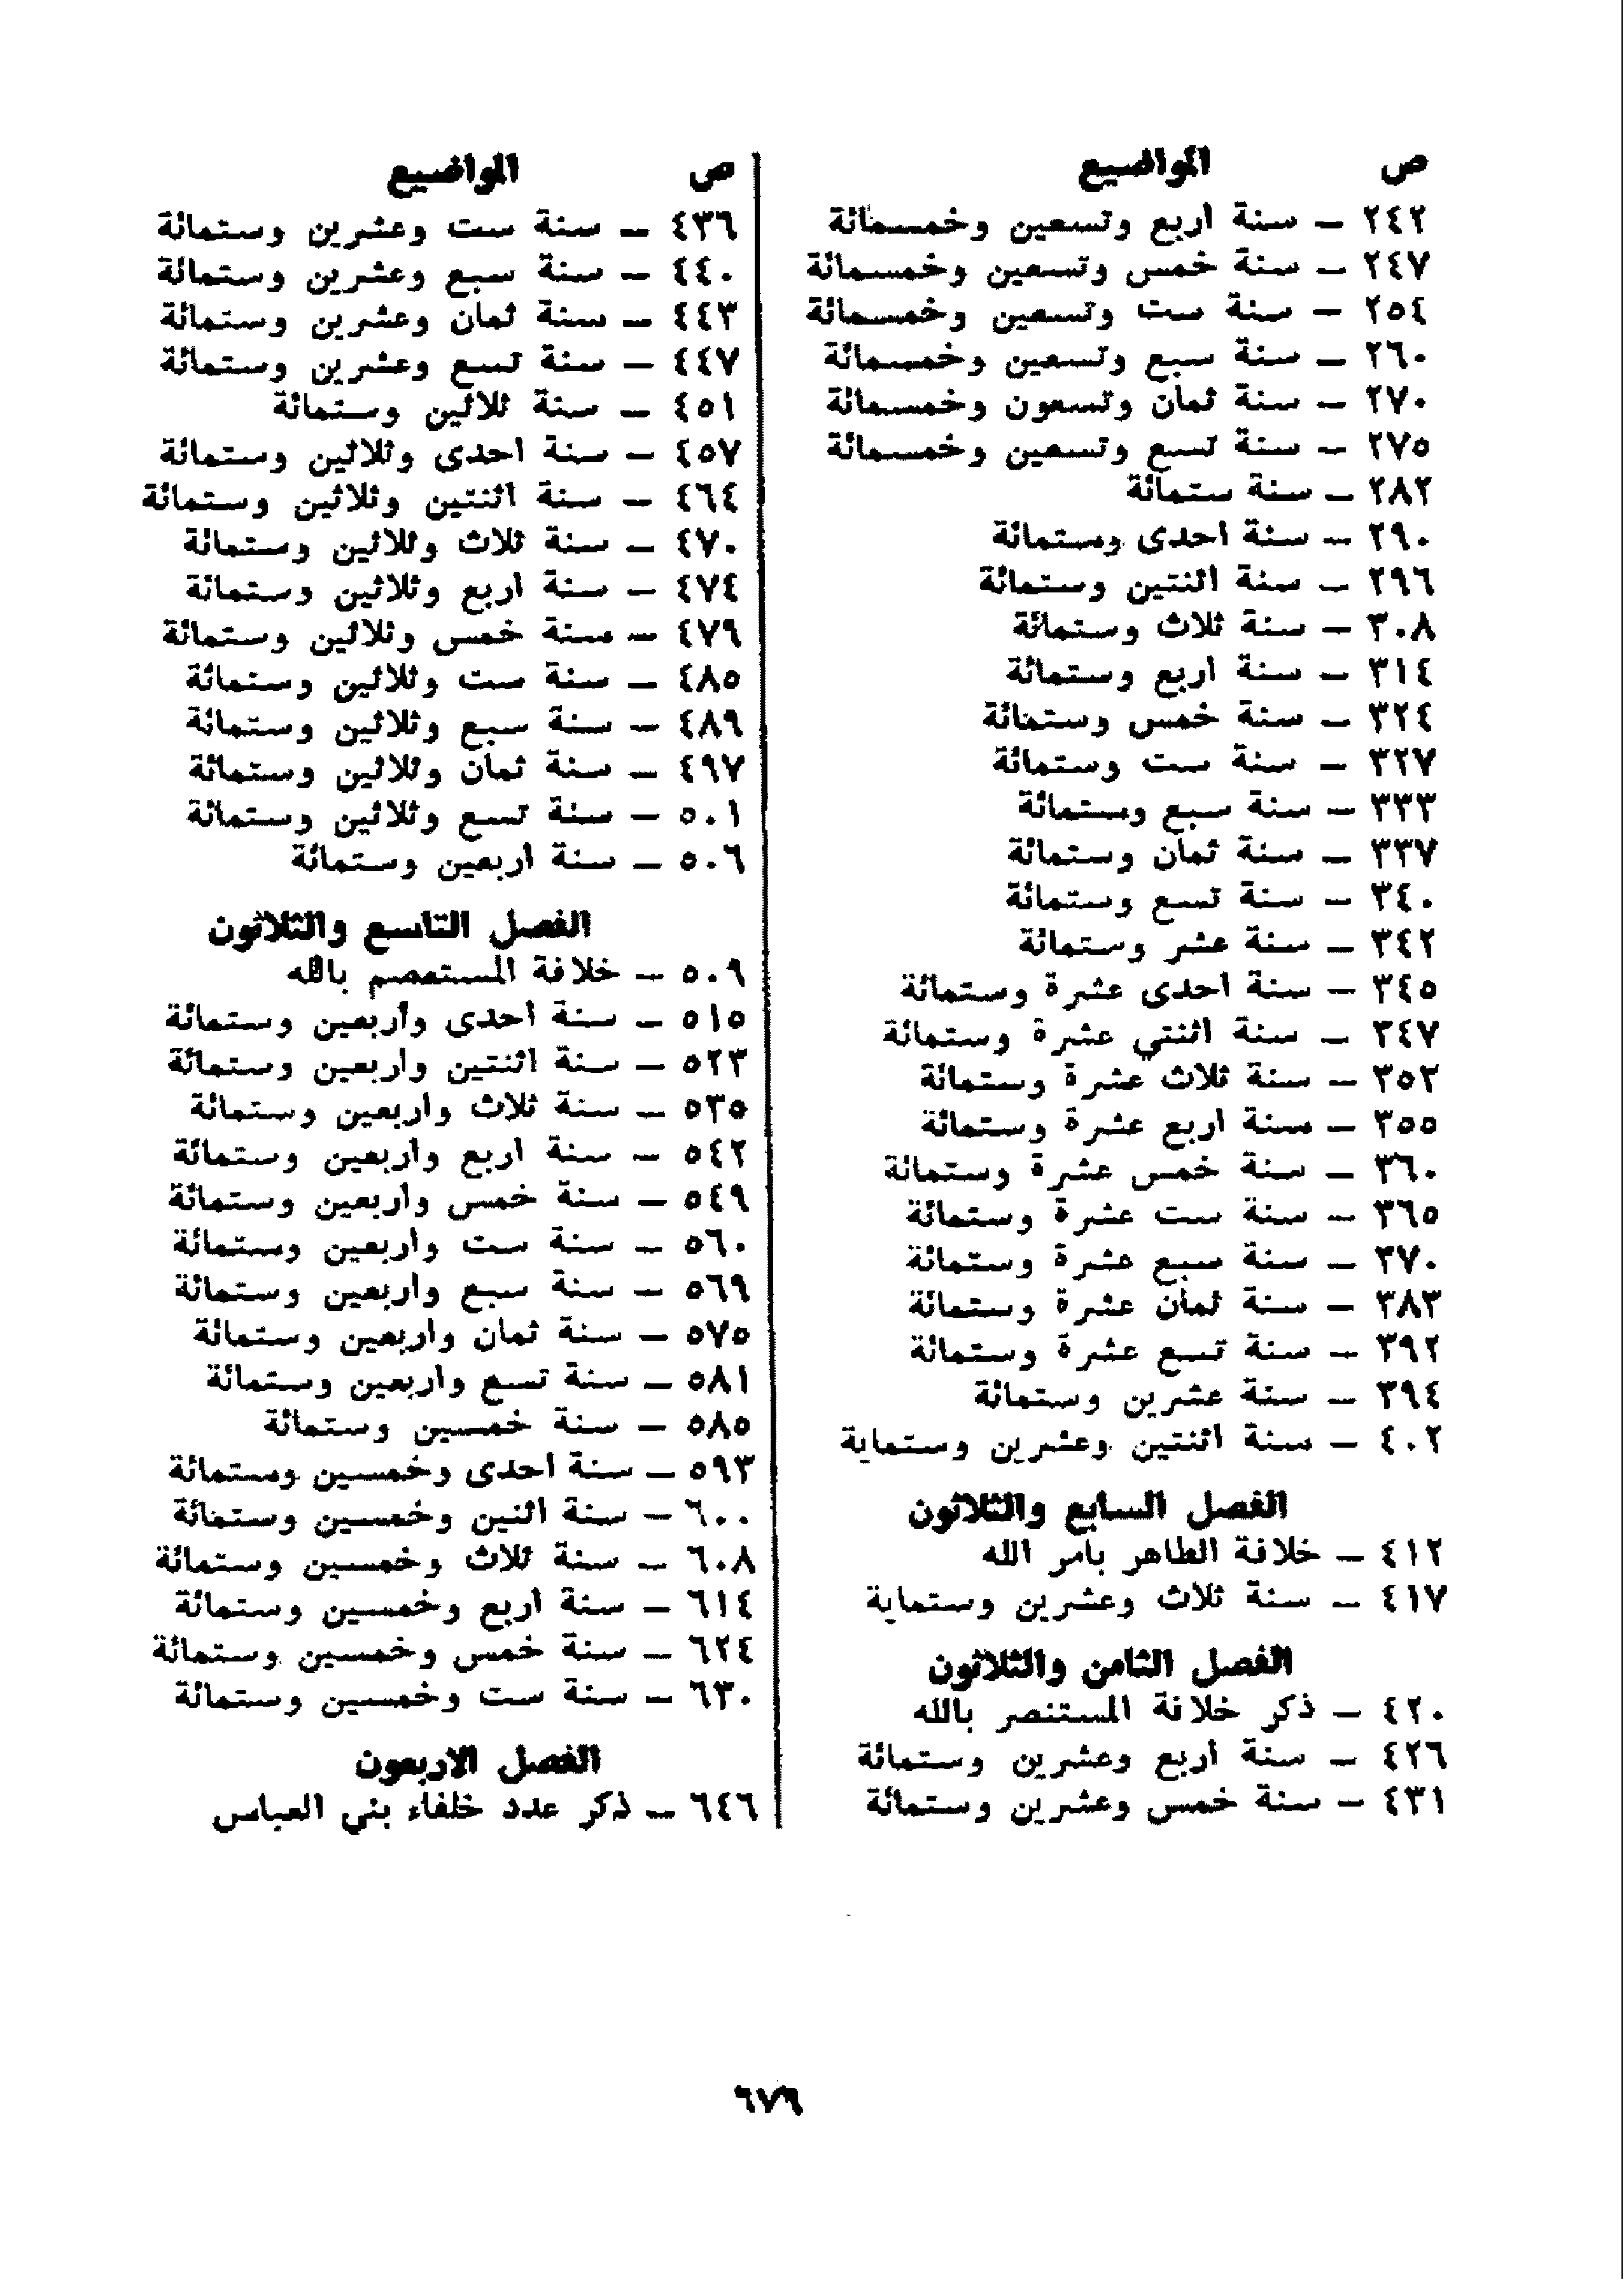 ص المواضيع
٢٤٢ – سنة أربع وتسعين وخمسمائة
٢٤٧ – سنة خمس وتسعين وخمسمائة
٢٥٤ – سنة ست وتسعين وخمسمائة
٢٦٠ – سنة سبع وتسعين وخمسمائة
٢٧٠ – سنة ثمان وتسعون وخمسمائة
٢٧٥ – سنة تسع وتسعين وخمسمائة
٢٨٢ – سنة ستمائة
٢٩٠ – سنة احدى وستمائة
٢٩٦ – سنة اثنتين وستمائة
٣٠٨ – سنة ثلاث وستمائة
٣١٤ – سنة اربع وستمائة
٣٢٤ – سنة خمس وستمائة
٣٢٧ – سنة ست وستمائة
٣٣٣ – سنة سبع وستمائة
٣٣٧ – سنة ثمان وستمائة
٣٤٠ – سنة تسع وستمائة
٣٤٢ – سنة عشر وستمائة
٣٤٥ – سنة احدى عشرة وستمائة
٣٤٧ – سنة اثنتي عشرة وستمائة
٣٥٢ – سنة ثلاث عشرة وستمائة
٣٥٥ – سنة اربع عشرة وستمائة
٣٦٠ – سنة خمس عشرة وستمائة
٣٦٥ – سنة ست عشرة وستمائة
٣٧٠ – سنة سبع عشرة وستمائة
٣٨٣ – سنة ثمان عشرة وستمائة
٣٩٢ – سنة تسع عشرة وستمائة
٣٩٤ – سنة عشرين وستمائة
٤٠٢ – سنة اثنتين وعشرين وستماية
الفصل السابع والثلاثون
٤١٢ – خلافة الظاهر بامر الله
٤١٧ – سنة ثلاث وعشرين وستماية
الفصل الثامن والثلاثون
٤٢٠ – ذكر خلافة المستنصر بالله
٤٢٦ – سنة أربع وعشرين وستمائة
٤٣١ – سنة خمس وعشرين وستمائة
ص المواضيع
٤٣٦ – سنة ست وعشرين وستمائة
٤٤٠ – سنة سبع وعشرين وستمائة
٤٤٣ – سنة ثمان وعشرين وستمائة
٤٤٧ – سنة تسع وعشرين وستمائة
٤٥١ – سنة ثلاثين وستمائة
٤٥٧ – سنة احدى وثلاثين وستمائة
٤٦٤ – سنة اثنتين وثلاثين وستمائة
٤٧٠ – سنة ثلاث وثلاثين وستمائة
٤٧٤ – سنة اربع وثلاثين وستمائة
٤٧٩ – سنة خمس وثلاثين وستمائة
٤٨٥ – سنة ست وثلاثين وستمائة
٤٨٩ – سنة سبع وثلاثين وستمائة
٤٩٧ – سنة ثمان وثلاثين وستمائة
٥٠١ – سنة تسع وثلاثين وستمائة
٥٠٦ – سنة أربعين وستمائة
الفصل التاسع والثلاثون
٥٠٩ – خلافة المستعصم بالله
٥١٥ – سنة احدى وأربعين وستمائة
٥٢٣ – سنة اثنتين واربعين وستمائة
٥٣٥ – سنة ثلاث واربعين وستمائة
٥٤٢ – سنة اربع واربعين وستمائة
٥٤٩ – سنة خمس واربعين وستمائة
٥٦٠ – سنة ست واربعين وستمائة
٥٦٩ – سنة سبع واربعين وستمائة
٥٧٥ – سنة ثمان واربعين وستمائة
٥٨١ – سنة تسع واربعين وستمائة
٥٨٥ – سنة خمسين وستمائة
٥٩٣ – سنة احدى وخمسين وستمائة
٦٠٠ – سنة اثنين وخمسين وستمائة
٦٠٨ – سنة ثلاث وخمسين وستمائة
٦١٤ – سنة أربع وخمسين وستمائة
٦٢٤ – سنة خمس وخمسين وستمائة
٦٣٠ – سنة ست وخمسين وستمائة
الفصل الاربعون
٦٤٦ – ذكر عدد خلفاء بني العباس
٦٧٩